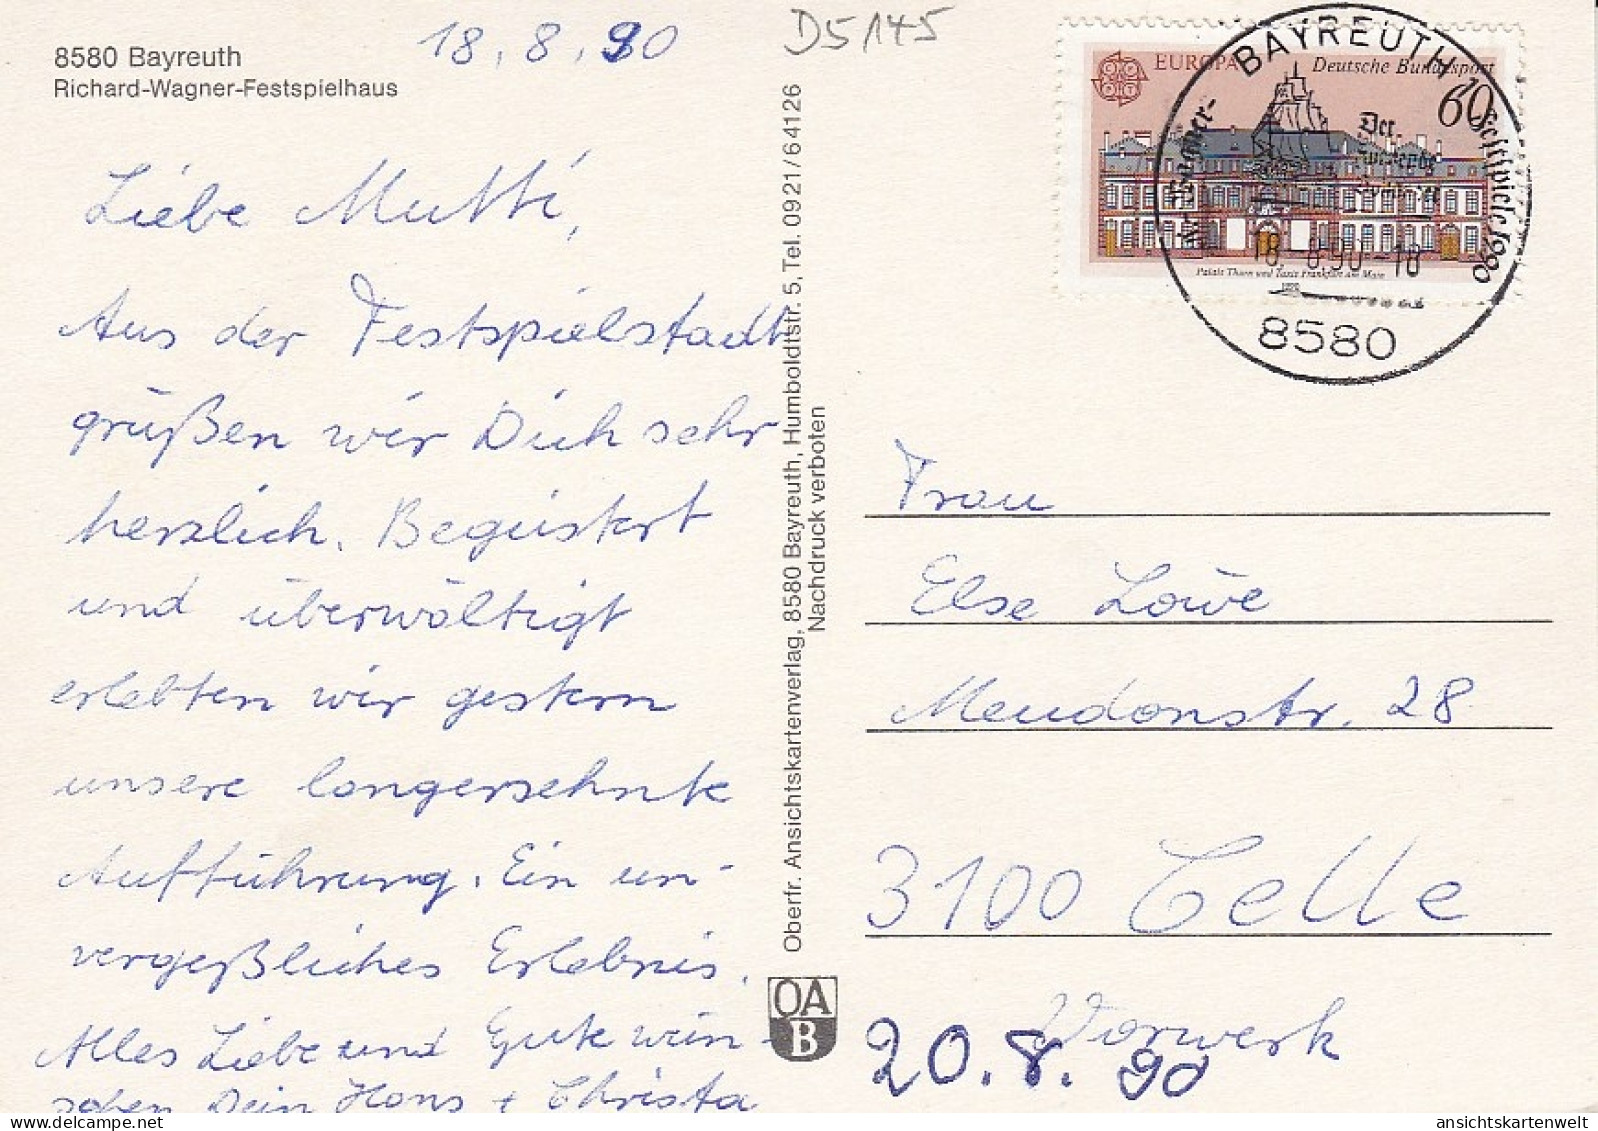 8580 Bayreuth
Richard-Wagner-Festspielhaus
18. 8. 90
D5145
Liebe Mutti,
Aus der Festspielstadt
grüßen wir Dich sehr
herzlich. Begeistert
und überwältigt
erlebten wir gestern
unsere langersehnte
Aufführung. Ein un-
vergeßliches Erlebnis.
Alles Liebe und Gute wün-
schen Dein Hans + Christa
Oberfr. Ansichtskartenverlag, 8580 Bayreuth, Humboldtstr. 5, Tel. 0921/64126
Nachdruck verboten
OA
B
EUROPA
Deutsche Bundespost
60
Palais Thurn und Taxis Frankfurt am Main
1990
BAYREUTH 1
Wagner-
Festspiele 1990
Der
18. 8.90-18
8580
Frau
Else Löwe
Meudonstr. 28
3100 Celle
Vorwerk
20. 8. 90
ansichtskartenwelt